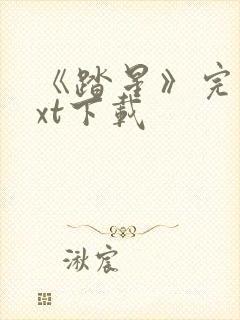 《踏星》完
xt下载
湫宸